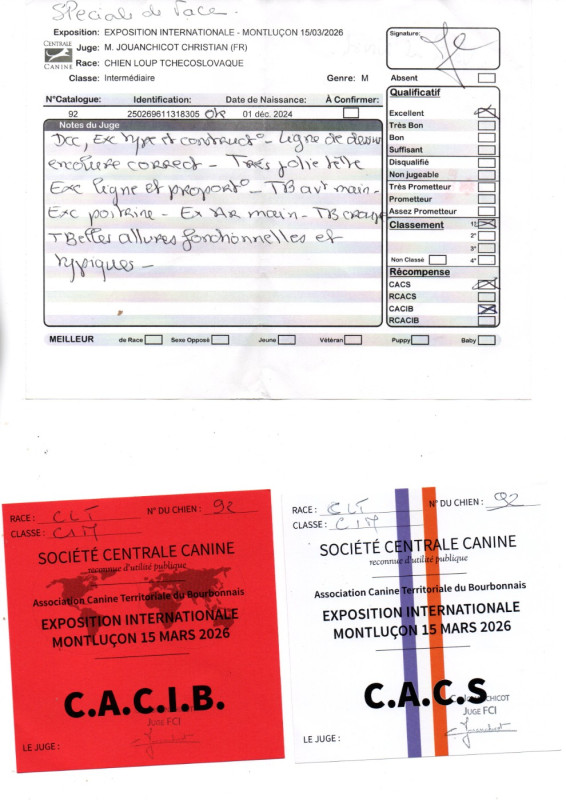 Spéciale de race
Exposition: EXPOSITION INTERNATIONALE - MONTLUÇON 15/03/2026
Signature:
CENTRALE CANINE
Juge: M. JOUANCHICOT CHRISTIAN (FR)
Race: CHIEN LOUP TCHECOSLOVAQUE
Classe: Intermédiaire
Genre: M
Absent
N°Catalogue: Identification: Date de Naissance: À Confirmer:
92 250269611318305 OK 01 déc. 2024
Notes du Juge
Dcc, Exc type et construct° - Ligne de dessus
encolure correct - Très jolie tête
Exc ligne et proport° - TB avt main -
Exc poitrine - Ex Ar main - TB
TBelles allures fonctionnelles et
typiques -
Qualificatif
Excellent
Très Bon
Bon
Suffisant
Disqualifié
Non jugeable
Très Prometteur
Prometteur
Assez Prometteur
Classement 1°
2°
3°
Non Classé 4°
Récompense
CACS
RCACS
CACIB
RCACIB
MEILLEUR de Race Sexe Opposé Jeune Vétéran Puppy Baby
RACE : CLT N° DU CHIEN : 92
CLASSE : CIM
SOCIÉTÉ CENTRALE CANINE
reconnue d'utilité publique
Association Canine Territoriale du Bourbonnais
EXPOSITION INTERNATIONALE
MONTLUÇON 15 MARS 2026
C.A.C.I.B.
JUGE FCI
LE JUGE :
RACE : CLT N° DU CHIEN : 92
CLASSE : CIM
SOCIÉTÉ CENTRALE CANINE
reconnue d'utilité publique
Association Canine Territoriale du Bourbonnais
EXPOSITION INTERNATIONALE
MONTLUÇON 15 MARS 2026
C.A.C.S
JUGE FCI
LE JUGE :